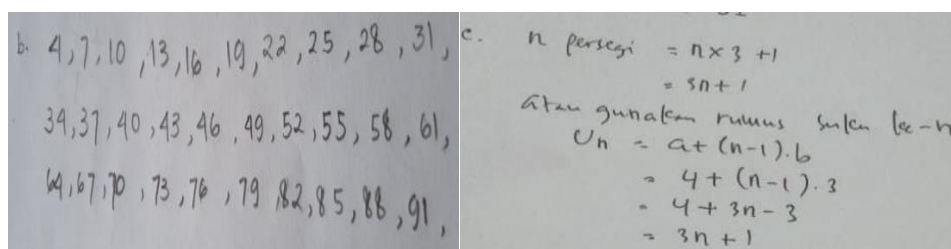 b. 4, 7, 10, 13, 16, 19, 22, 25, 28, 31,
34, 37, 40, 43, 46, 49, 52, 55, 58, 61,
64, 67, 70, 73, 76, 79, 82, 85, 88, 91,
c. n persegi = n x 3 + 1
= 3n + 1
atau gunakan rumus suku ke-n
Un = a + (n-1). b
= 4 + (n-1). 3
= 4 + 3n - 3
= 3n + 1